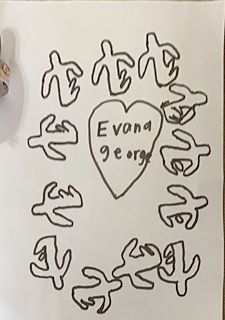 Evana
george